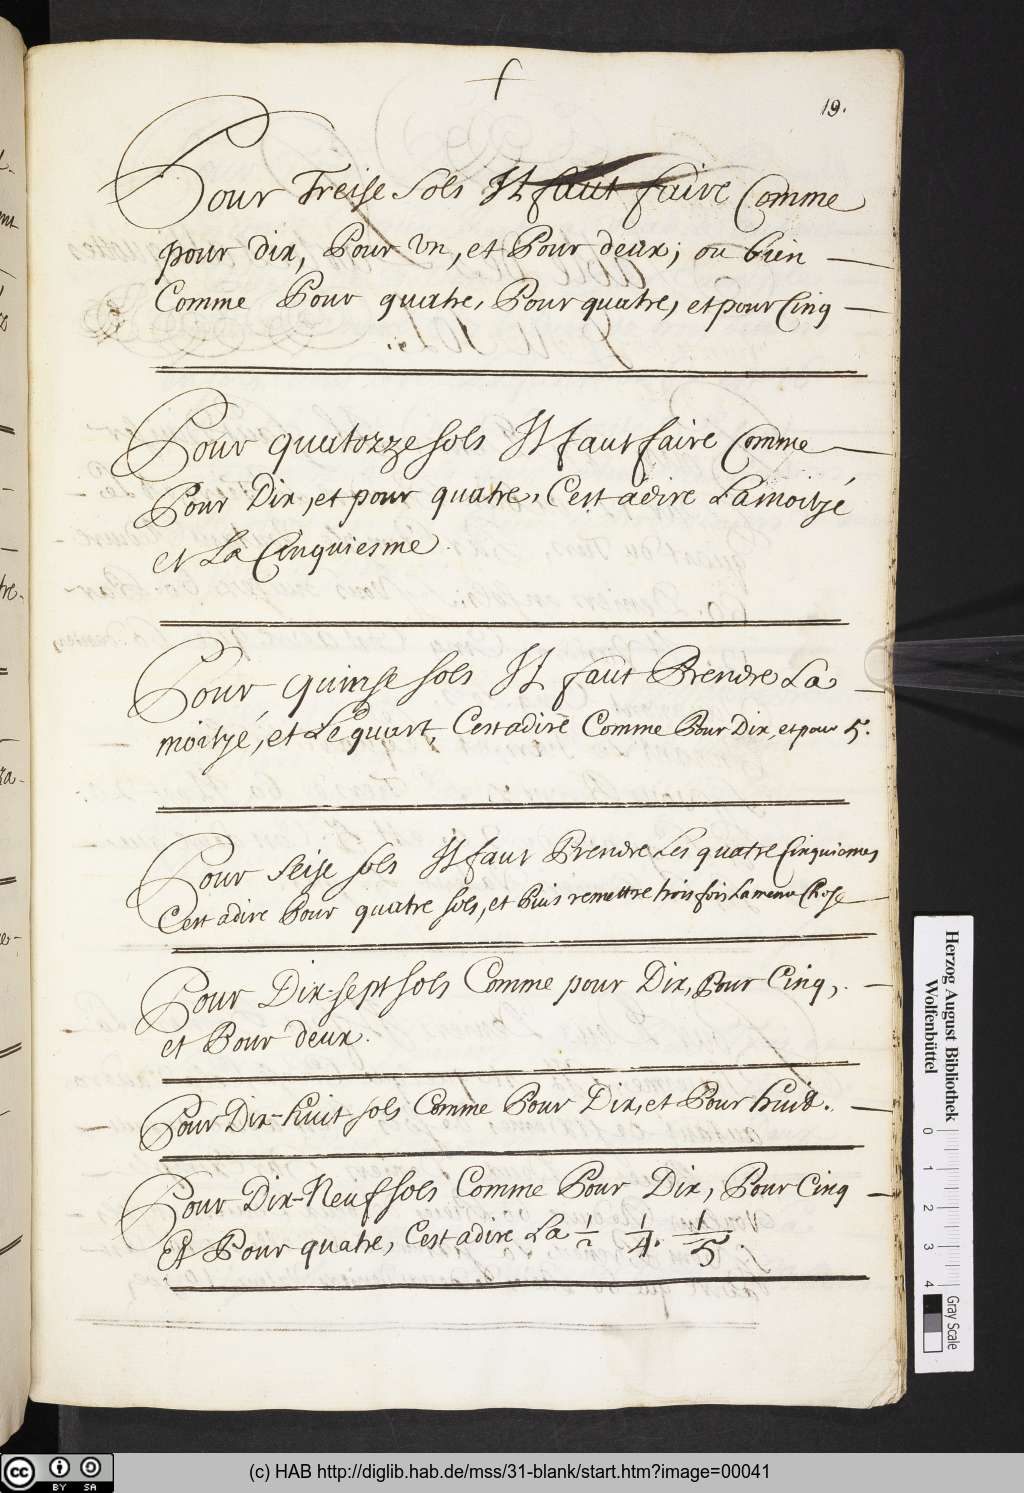 19.
Pour Treise sols Il faut faire Comme
pour dix, Pour vn, et Pour deux; ou bien
Comme Pour quatre, Pour quatre, et pour Cinq
Pour quatozze sols Il faut faire Comme
Pour Dix, et pour quatre, Cest adire La moitjé
et La Cinquiesme.
Pour quinse sols Il faut Prendre La
moitjé, et Le quart, Cest adire Comme Pour Dix, et pour 5.
Pour seise sols Il faut Prendre Les quatre Cinquiemes
Cest adire Pour quatre sols, et Puis remettre trois fois La meme Chose
Pour Dix-sept sols Comme pour Dix, Pour Cinq,
et Pour deux.
Pour Dix-huit sols Comme Pour Dix, et Pour huit.
Pour Dix-Neuf sols Comme Pour Dix, Pour Cinq
Et Pour quatre, Cest adire La 1/2 1/4. 1/5.
Herzog August Bibliothek
Wolfenbüttel
0 1 2 3 4 Gray Scale
cc BY SA
(c) HAB http://diglib.hab.de/mss/31-blank/start.htm?image=00041